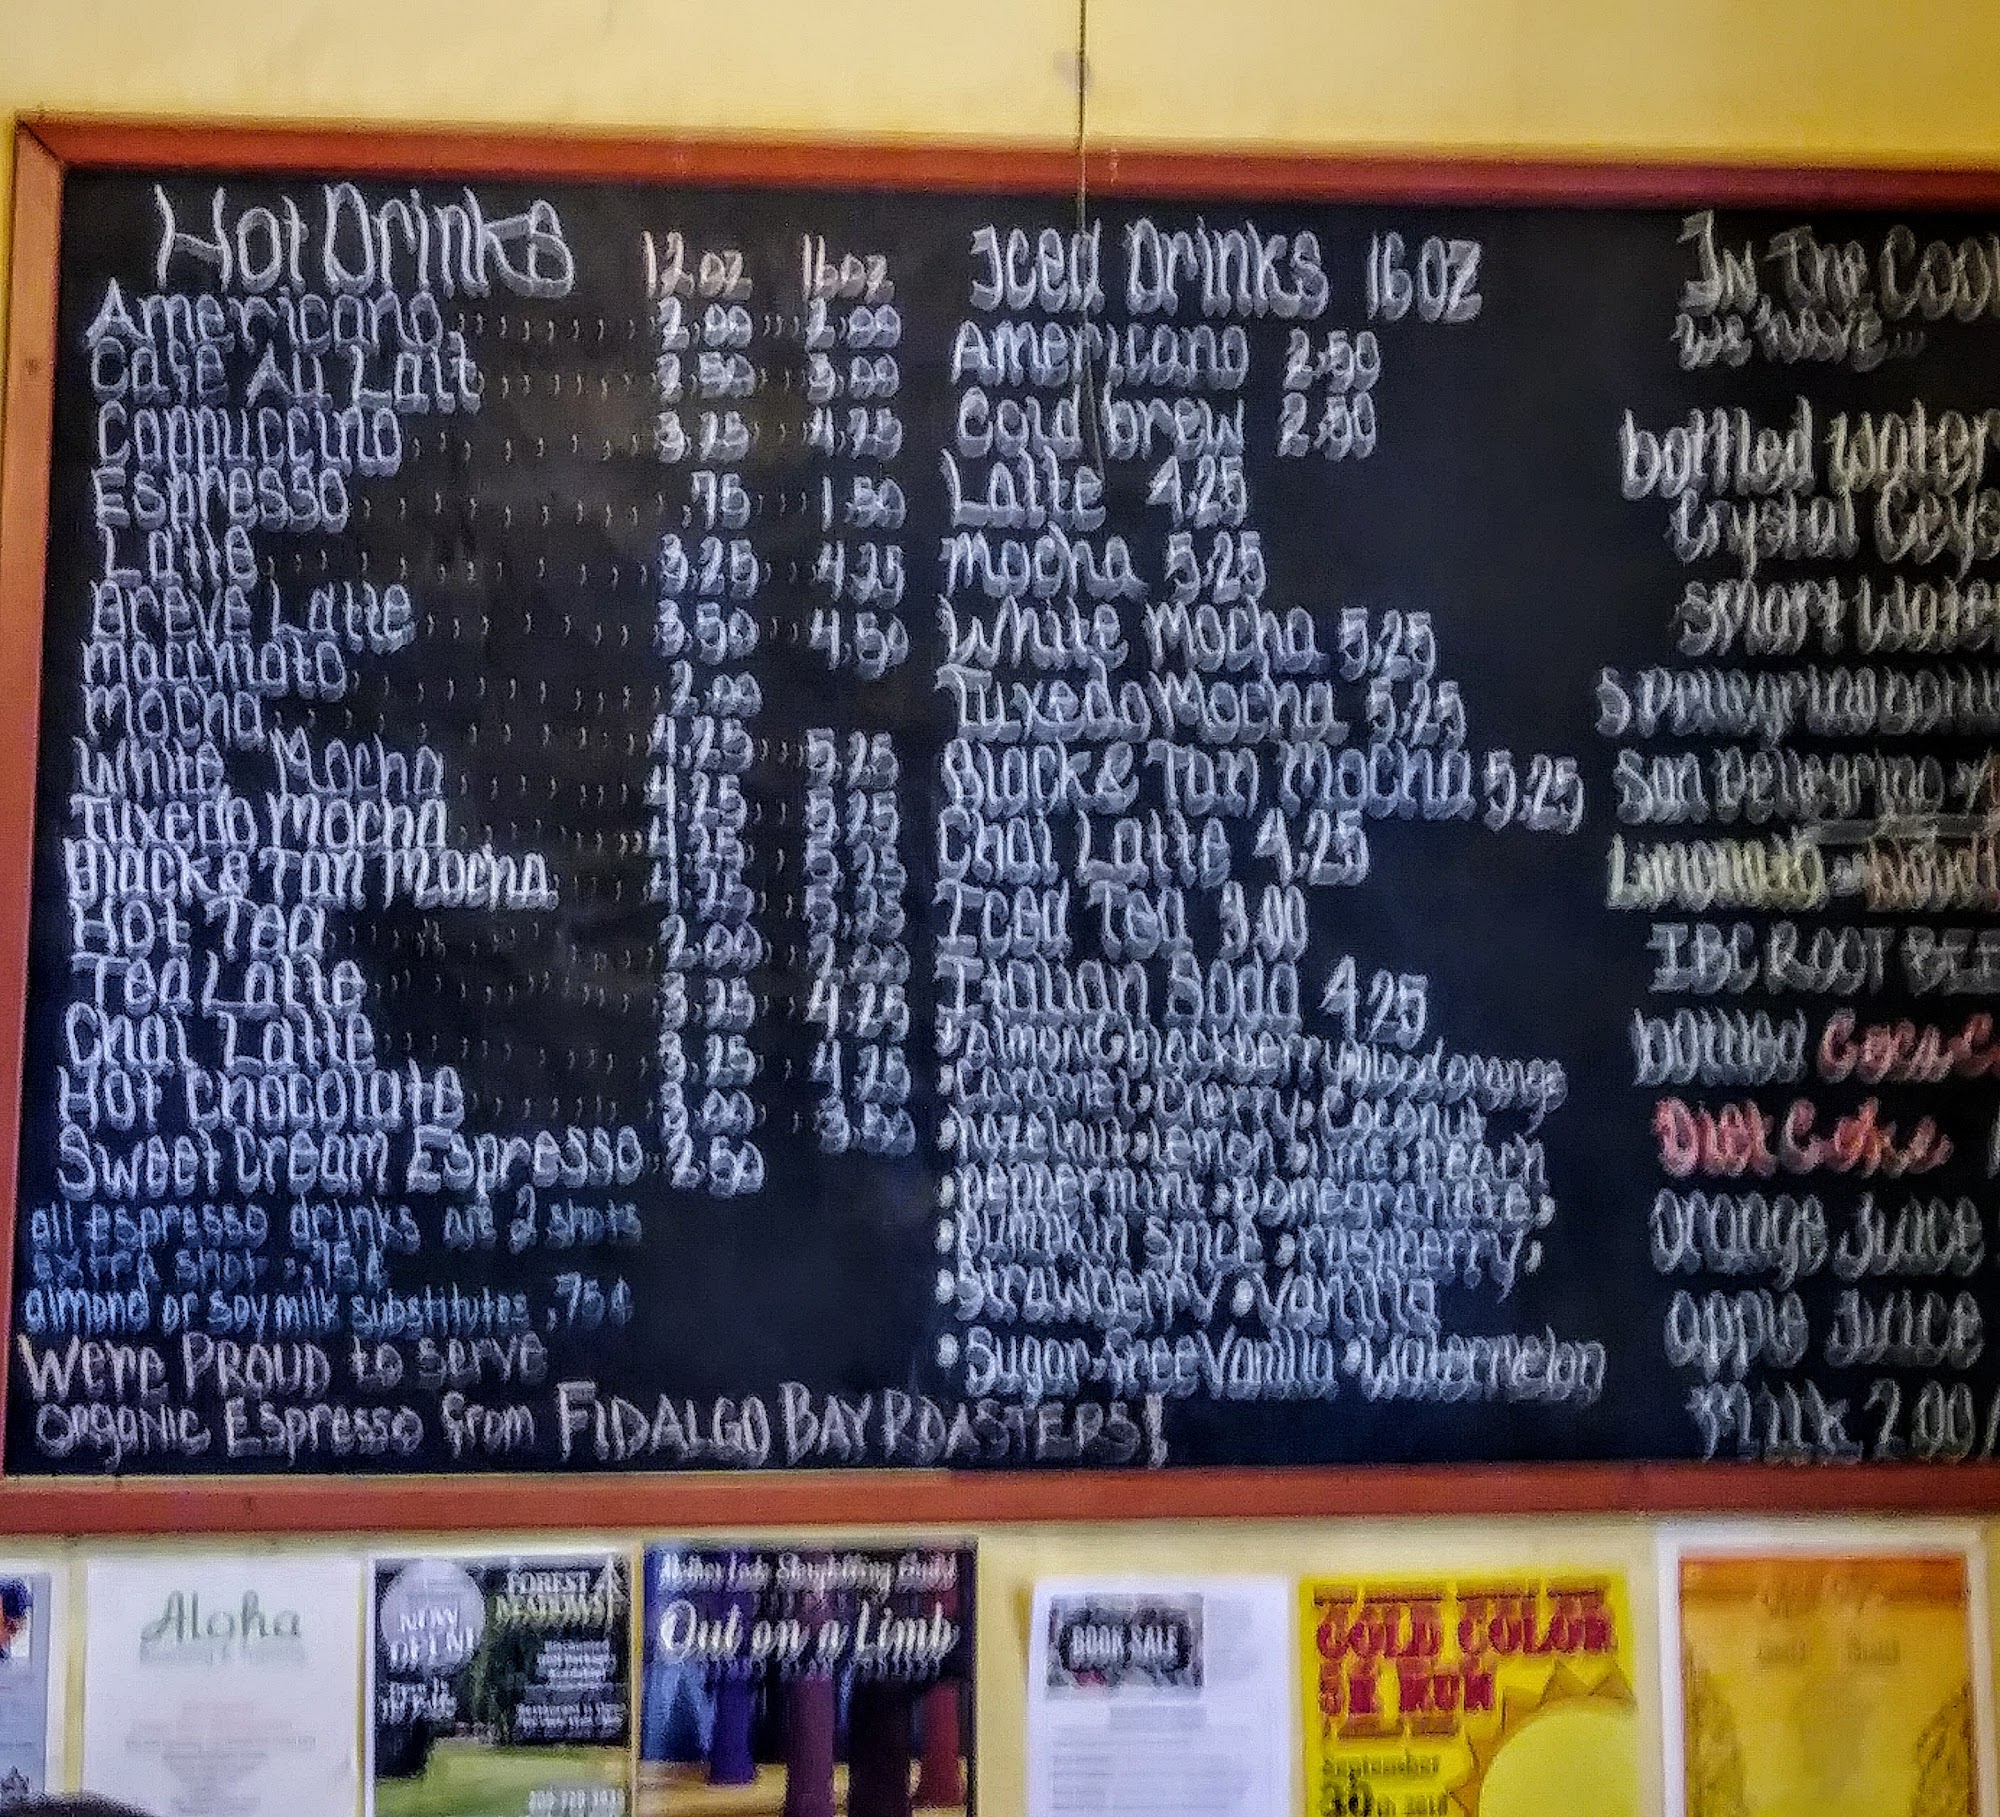 Hot Drinks 12oz 16oz
Americano 2.00 2.00
Cafe Au Lait 2.50 3.00
Cappuccino 3.25 4.25
Espresso .75 1.50
Latte 3.25 4.25
Breve Latte 3.50 4.50
Macchiato 2.00
Mocha 4.25 5.25
White Mocha 4.25 5.25
Tuxedo Mocha 4.25 5.25
Black & Tan Mocha 4.25 5.25
Hot Tea 2.00 2.00
Tea Latte 3.25 4.25
Chai Latte 3.25 4.25
Hot Chocolate 3.00 3.50
Sweet Cream Espresso 2.50
all espresso drinks are 2 shots
extra shot .75¢
almond or soy milk substitutes .75¢
We're PROUD to serve
Organic Espresso from FIDALGO BAY ROASTERS!
Iced Drinks 16 oz
Americano 2.50
Cold brew 2.50
Latte 4.25
Mocha 5.25
White Mocha 5.25
Tuxedo Mocha 5.25
Black & Tan Mocha 5.25
Chai Latte 4.25
Iced Tea 3.00
Italian Soda 4.25
• almond • blackberry • blood orange
• Caramel • Cherry • Coconut
• hazelnut • lemon • lime • peach
• peppermint • pomegranate •
• pumpkin spice • raspberry •
• strawberry • vanilla
• Sugar-free Vanilla • Watermelon
In The
we have...
bottled water
Crystal
Smart Water
San Pellegrino
Limonata or
IBC ROOT
bottled
Diet Coke
Orange Juice
apple Juice
milk 2.00
Aloha
NOW OPEN!
FOREST
MEADOWS
Storytelling Guild
Out on a Limb
BOOK SALE
GOLD COLOR
5K RUN
September
30